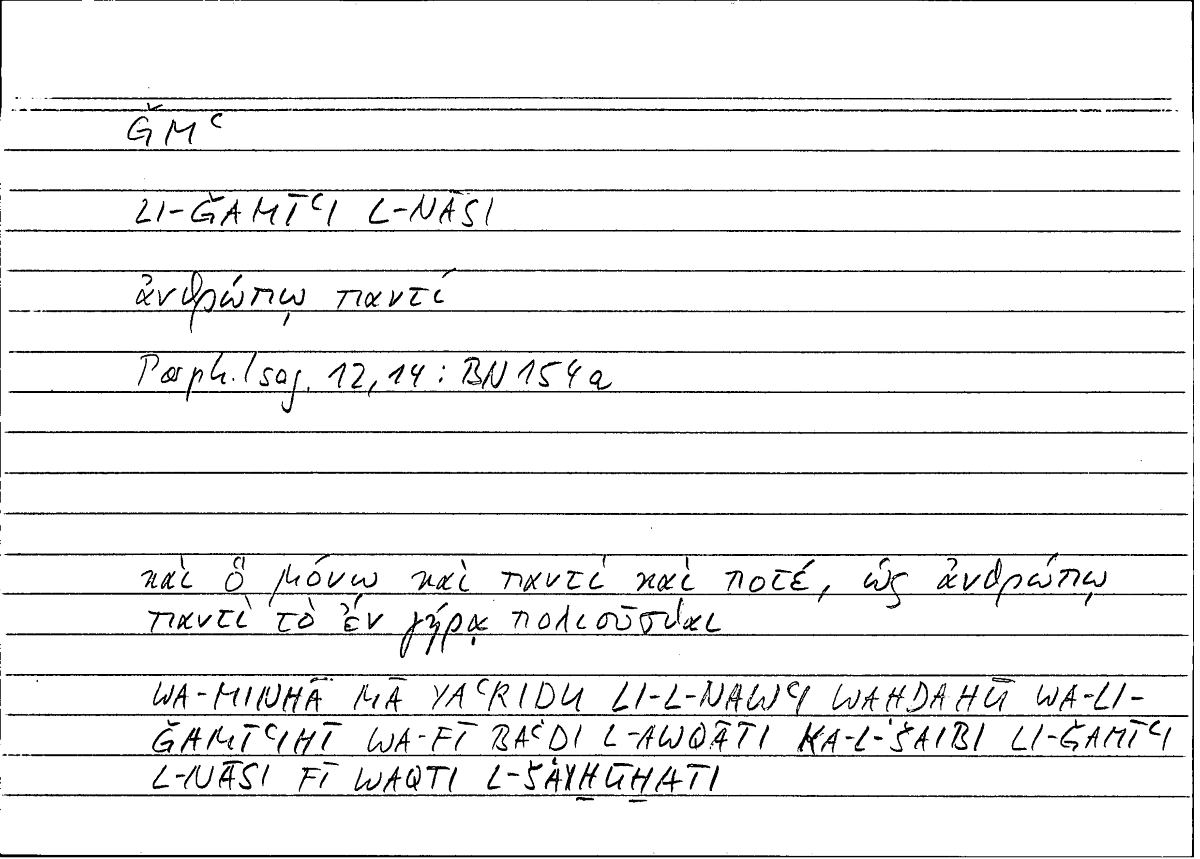 ǦMʿ
LI-ǦAMĪʿI L-NĀSI
ἀνθρώπῳ παντί
Porph. Isag. 12,14: BN 154a
καὶ ὃ μόνῳ καὶ παντὶ καὶ ποτέ, ὡς ἀνθρώπῳ
παντὶ τὸ ἐν γήρᾳ πολιοῦσθαι
WA-MINHĀ MĀ YAʿRIDU LI-L-NAWʿI WAHDAHŪ WA-LI-
ǦAMĪʿIHĪ WA-FĪ BAʿDI L-AWQĀTI KA-L-ŠAIBI LI-ǦAMĪʿI
L-NĀSI FĪ WAQTI L-ŠAYḪŪḪATI